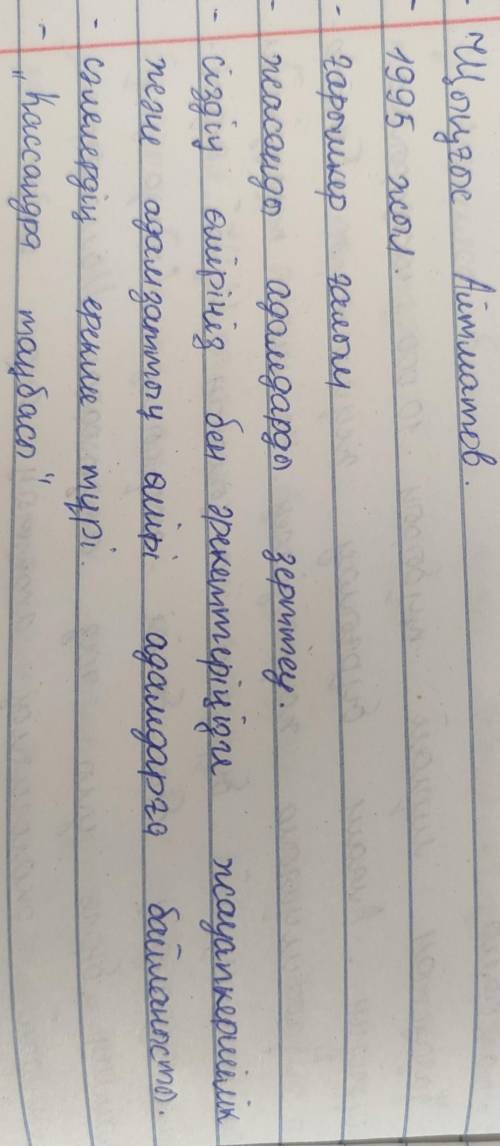 - Шыңғыс Айтматов.
- 1995 жыл.
- ғарышкер ғалым
- жасанды адамдарды зерттеу.
- сіздің өміріңіз бен әрекеттеріңізге жауапкершілік
және адамзаттың өмірі адамдарға байланысты.
- сәулелердің ерекше түрі.
- "Кассандра таңбасы"